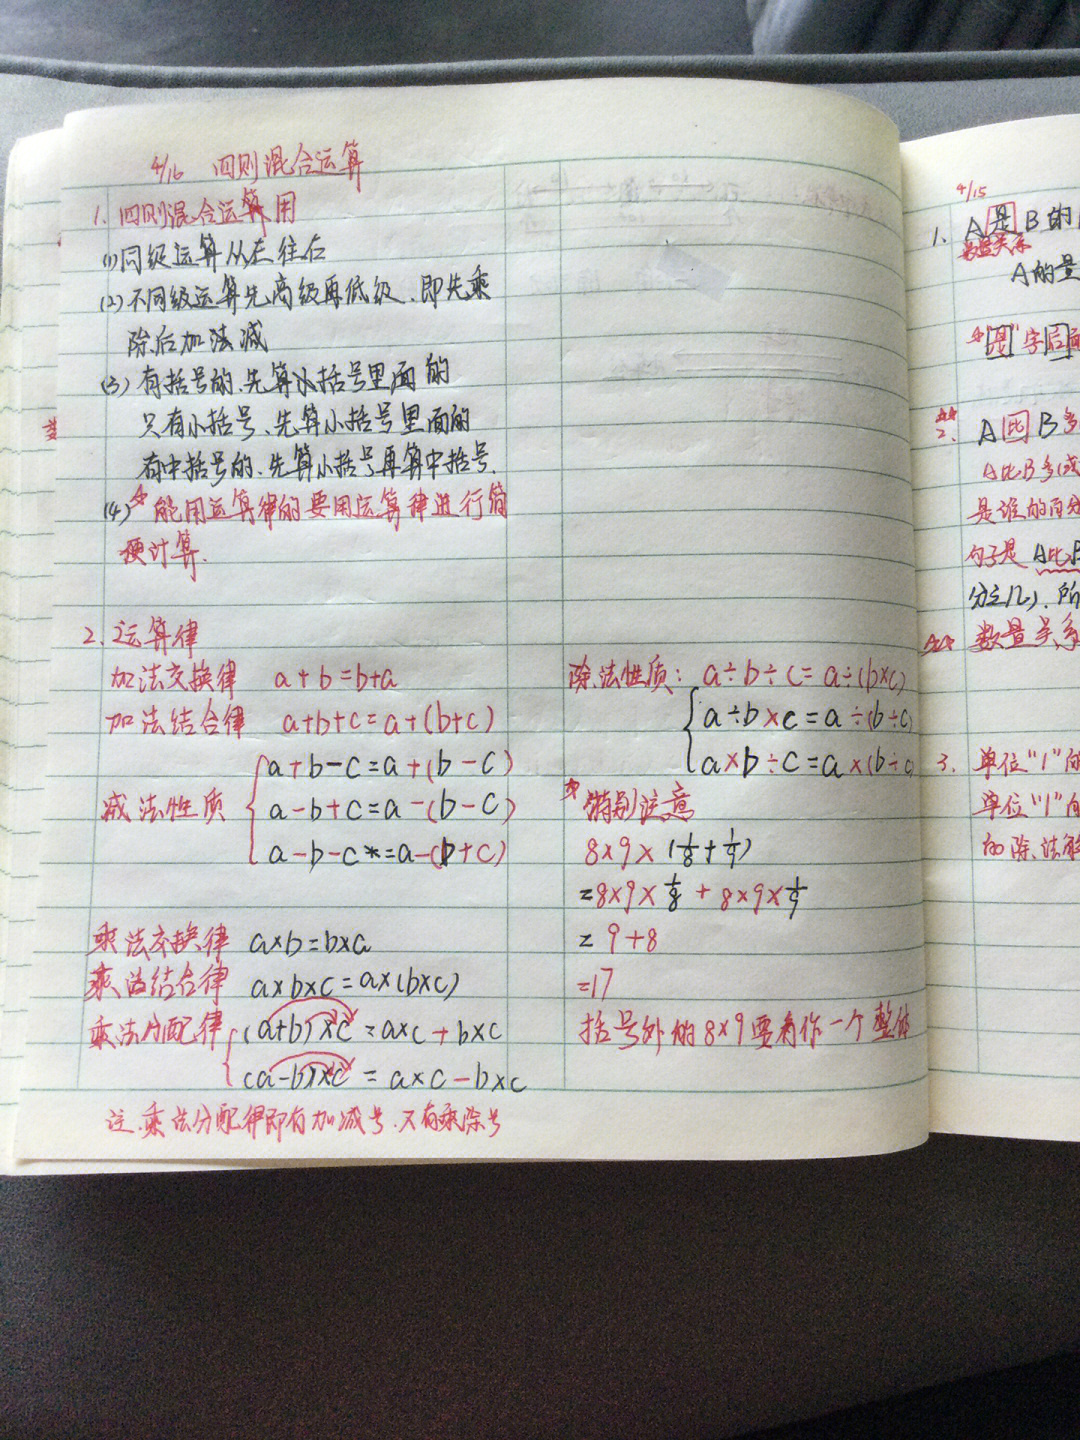 4/16 四则混合运算
1. 四则混合运算用
(1)同级运算从左往右
(2)不同级运算先高级再低级.即先乘
除后加法减
(3)有括号的.先算小括号里面的
只有小括号、先算小括号里面的
有中括号的.先算小括号再算中括号.
(4)☆能用运算律的要用运算律进行简
便计算.
2.运算律
加法交换律 a+b=b+a
加法结合律 a+b+c=a+(b+c)
a+b-c=a+(b-c)
减法性质 a-b+c=a-(b-c)
a-b-c=a-(b+c)
乘法交换律 a×b=b×a
乘法结合律 a×b×c=a×(b×c)
乘法分配律 (a+b)×c=a×c+b×c
(a-b)×c=a×c-b×c
注.乘法分配律即有加减号.又有乘除号
除法性质: a÷b÷c=a÷(b×c)
a÷b×c=a÷(b÷c)
a×b÷c=a×(b÷c)
☆特别注意
8×9×(1/8+1/9)
=8×9×1/8+8×9×1/9
=9+8
=17
括号外的8×9要看作一个整体
4/15
1. A是B的
数量关系
A的量
☆"是"字后面
☆☆
2. A比B多
A比B多(或
是谁的百分
句子是A比B
分之几).所
☆☆数量关系
3. 单位"1"的
单位"1"
的除法解